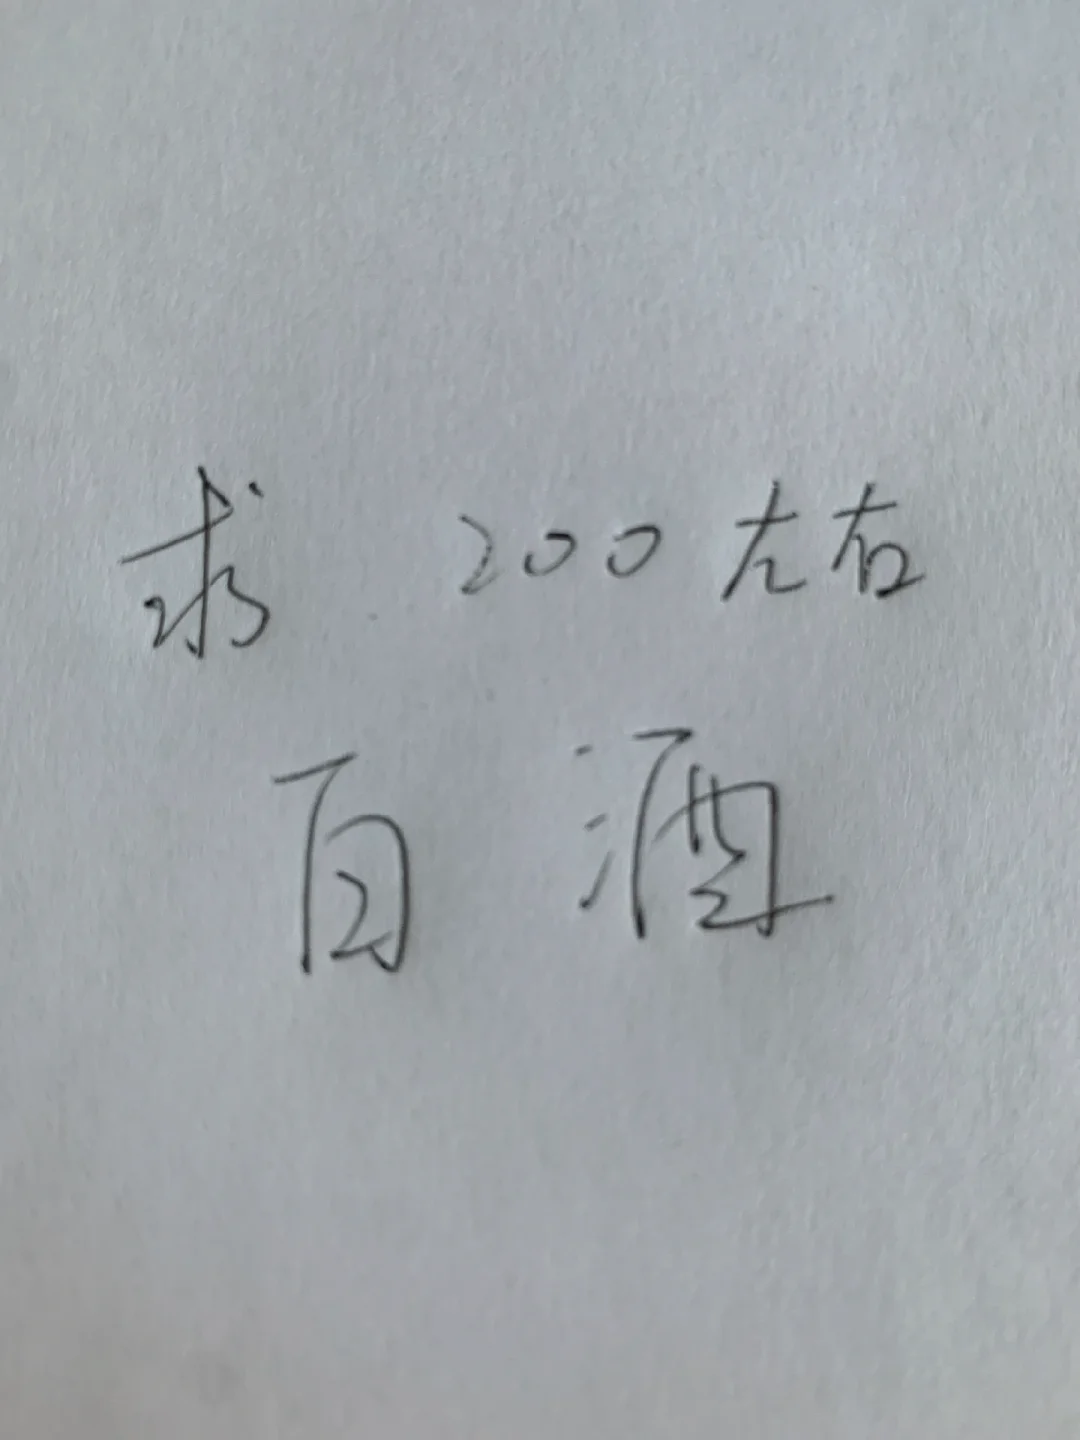 求 200左右
百酒